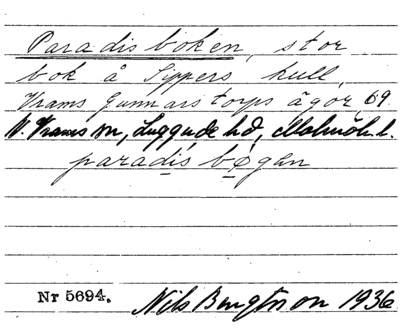 Paradisboken, stor
bok å Sippers kull,
Vrams Gunnarstorps ägor 69
N. Vrams sn, Luggude hd, Malmöh. l.
paradis bøgan
Nr 5694. Nils Bengtsson 1936